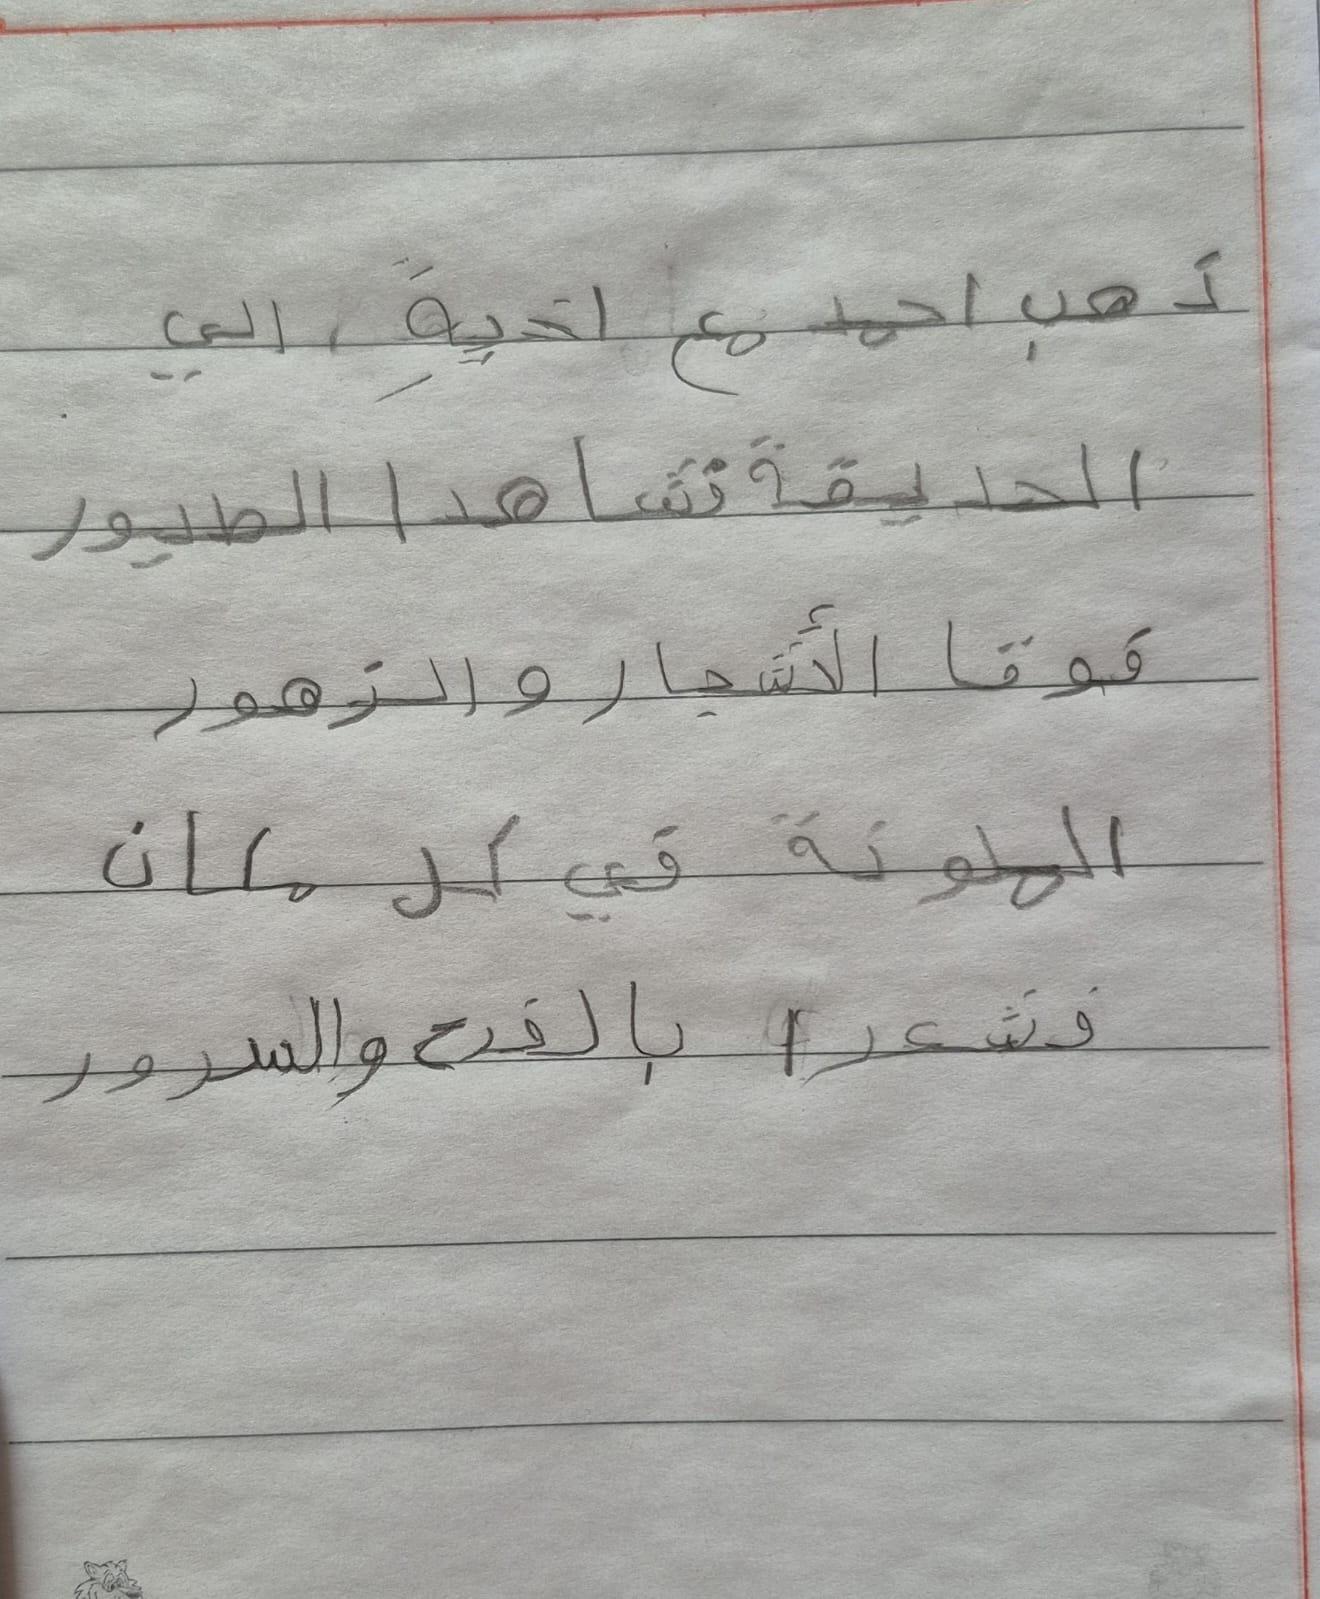 ذهب احمد مع اخيةِ ، الي
الحديقة تشاهدا الطيور
فوقا الأشجار والزهور
الملونة في كل مكان
فشعرا بالفرح والسرور